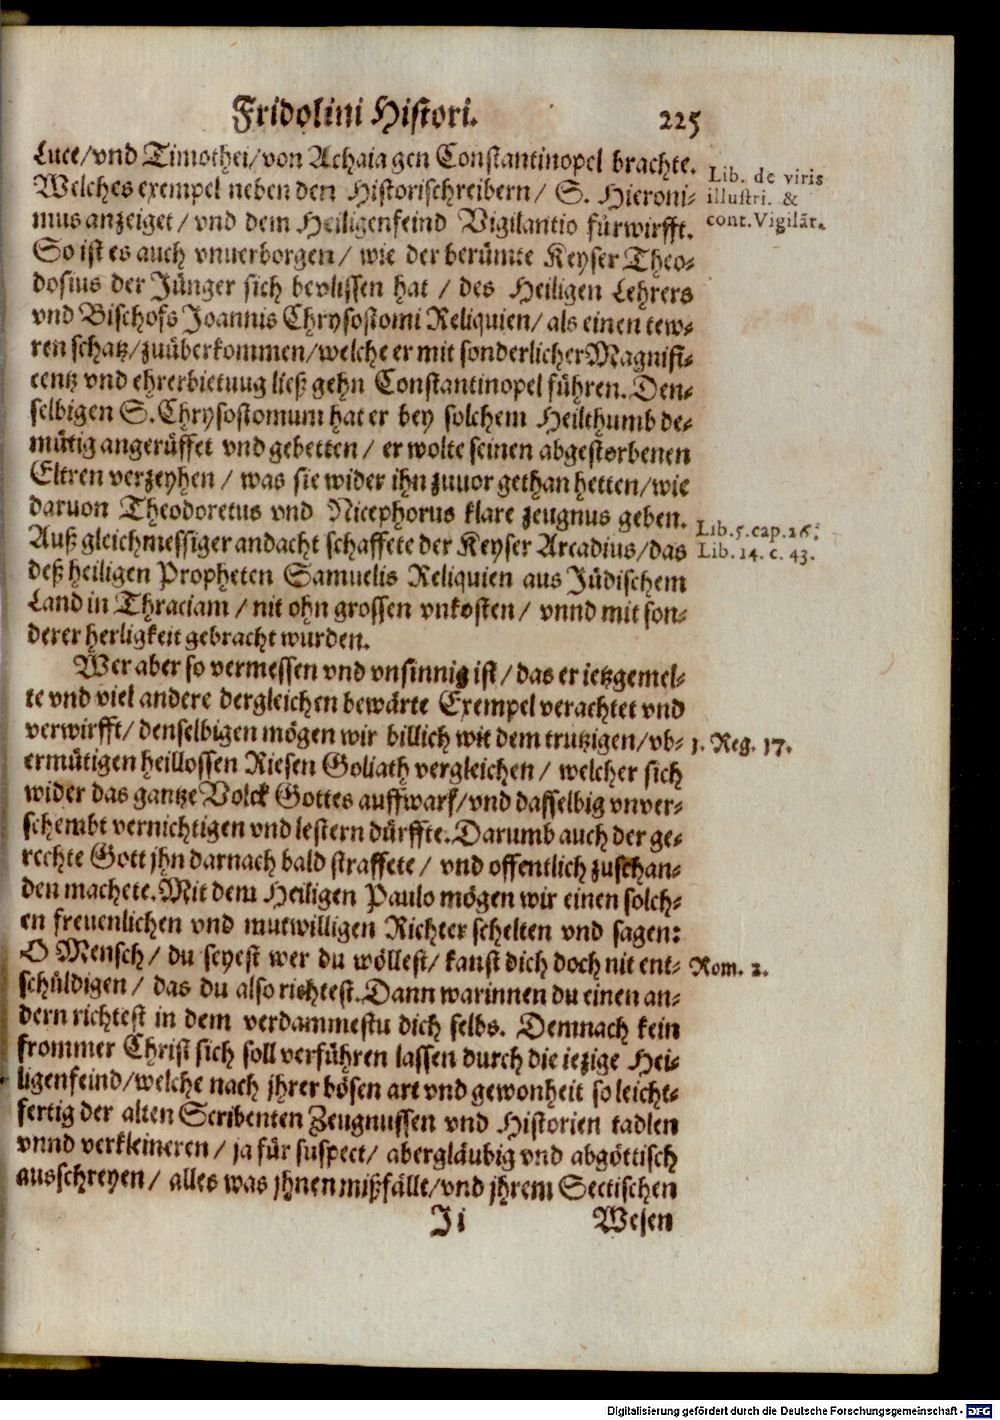 Fridolini Histori. 225
Luce/vnd Timothei/von Achaia gen Constantinopel brachte.
Welches exempel neben den Historischreibern/ S. Hieroni-
mus anzeiget/ vnd dem Heiligenfeind Vigilantio fürwirfft.
So ist es auch vnuerborgen/ wie der berümte Keyser Theo-
dosius der Jünger sich bevlissen hat / des Heiligen Lehrers
vnd Bischofs Joannis Chrysostomi Reliquien/ als einen tew-
ren schatz/zuüberkommen/welche er mit sonderlicher Magnifi-
centz vnd ehrerbietuug ließ gehn Constantinopel führen. Den-
selbigen S. Chrysostomum hat er bey solchem Heilthumb de-
mütig angerüffet vnd gebetten/ er wolte seinen abgestorbenen
Eltren verzeyhen / was sie wider ihn zuuor gethan hetten/wie
daruon Theodoretus vnd Nicephorus klare zeugnus geben.
Auß gleichmessiger andacht schaffete der Keyser Arcadius/das
deß heiligen Propheten Samuelis Reliquien aus Jüdischem
Land in Thraciam / nit ohn grossen vnkosten/ vnnd mit son-
derer herligkeit gebracht wurden.
Wer aber so vermessen vnd vnsinnig ist/ das er ietzgemel-
te vnd viel andere dergleichen bewärte Exempel verachtet vnd
verwirfft/ denselbigen mögen wir billich wie dem trutzigen/vb-
ermütigen heillossen Riesen Goliath vergleichen/ welcher sich
wider das gantze Volck Gottes auffwarf/vnd dasselbig vnver-
schembt vernichtigen vnd lestern dürffte. Darumb auch der ge-
rechte Gott jhn darnach bald straffete/ vnd offentlich zuschan-
den machete. Mit dem Heiligen Paulo mögen wir einen solch-
en freuenlichen vnd mutwilligen Richter schelten vnd sagen:
O Mensch/ du seyest wer du wöllest/ kanst dich doch nit ent-
schüldigen/ das du also richtest. Dann warinnen du einen an-
dern richtest in dem verdammestu dich selbs. Demnach kein
frommer Christ sich soll verführen lassen durch die iezige Hei-
ligenfeind/welche nach jhrer bösen art vnd gewonheit so leicht-
fertig der alten Scribenten Zeugnussen vnd Historien tadlen
vnnd verkleineren / ja für suspect/ abergläubig vnd abgöttisch
ausschreyen/ alles was jhnen mißfällt/vnd jhrem Sectischen
Ji Wesen
Lib. de viris
illustri. &
cont. Vigilãt.
Lib. 5. cap. 26.
Lib. 14. c. 43.
1. Reg. 17.
Rom. 2.
Digitalisierung gefördert durch die Deutsche Forschungsgemeinschaft - DFG